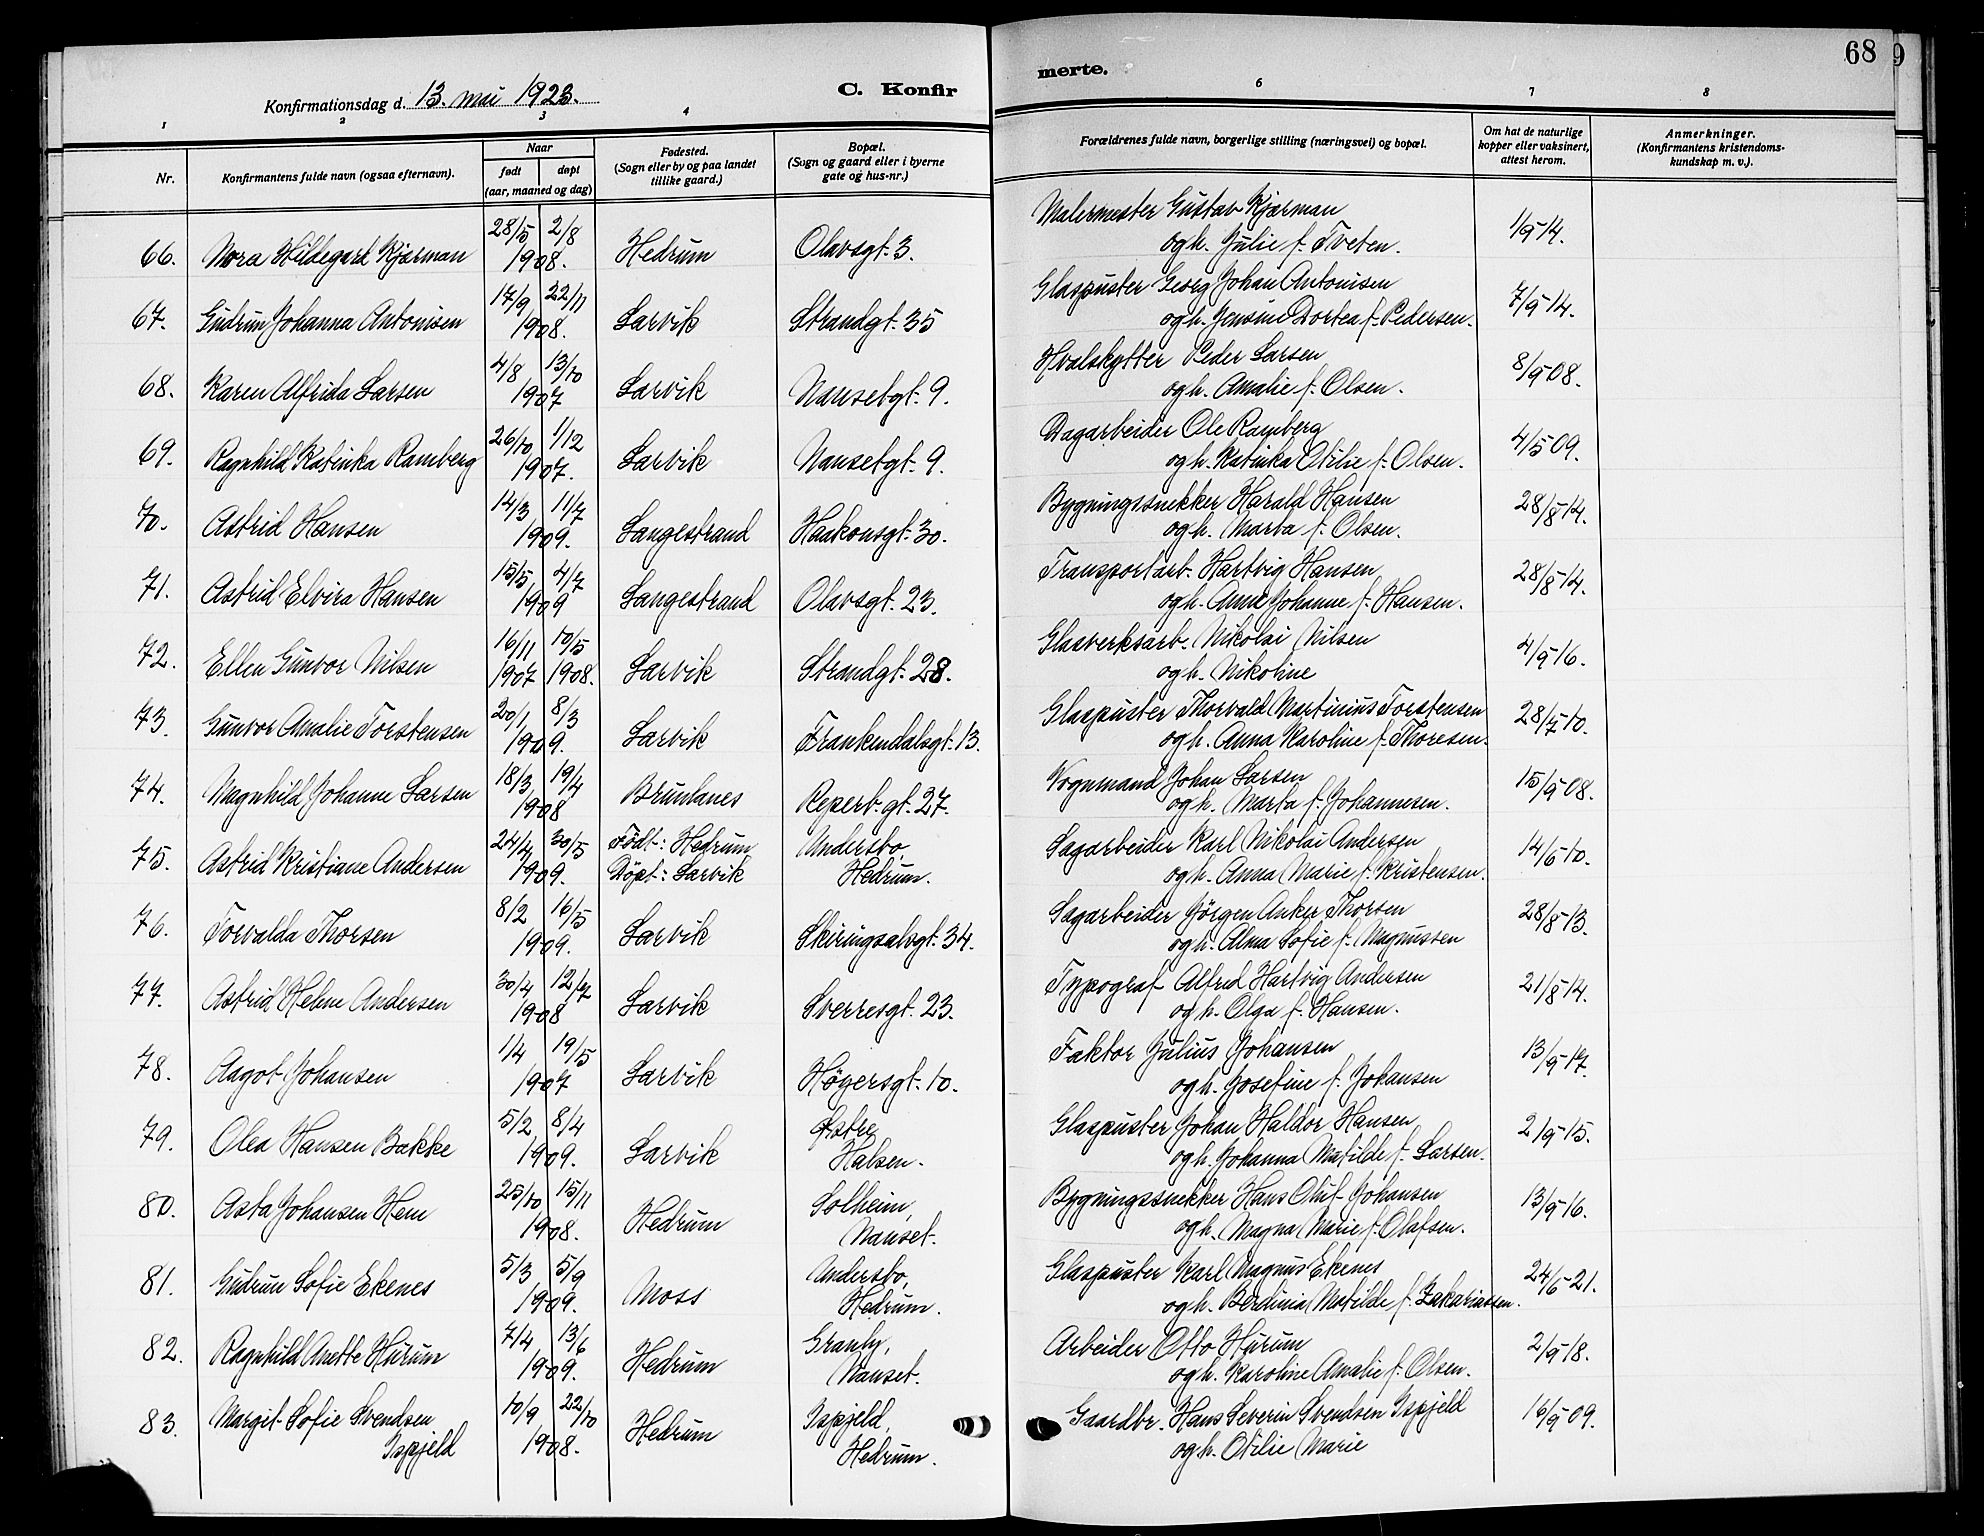 68
9
Konfirmationsdag d. 13. mai 1923.
C. Konfir
merte.
1 2 3 4 6 7 8
Nr.
Konfirmantens fulde navn (ogsaa efternavn).
Naar
født døpt
(aar, maaned og dag)
Fødested.
(Sogn eller by og paa landet
tillike gaard.)
Bopæl.
(Sogn og gaard eller i byerne
gate og hus-nr.)
Forældrenes fulde navn, borgerlige stilling (næringsvei) og bopæl.
Om hat de naturlige
kopper eller vaksinert,
attest herom.
Anmerkninger.
(Konfirmantens kristendoms-
kundskap m. v.).
66. Nora Hildegard Kjærman 28/5 2/8 1908. Hedrum Olavsgt. 3. Malermester Gustav Kjærman
og h. Julie f. Tveten. 1/9-14.
67. Gudrun Johanna Antonisen 17/9 22/11 1908. Larvik Strandgt. 35 Glaspuster Georg Johan Antonisen
og h. Jensine Dortea f. Pedersen. 7/9-14.
68. Karen Alfrida Larsen 4/8 13/10 1907 Larvik Nansetgt. 9. Hvalskytter Peder Larsen
og h. Amalie f. Olsen. 8/9-08.
69. Ragnhild Katinka Ramberg 26/10 1/12 1907. Larvik Nansetgt. 9. Dagarbeider Ole Ramberg
og h. Katinka Otilie f. Olsen. 4/5 09.
70. Astrid Hansen 14/3 11/7 1909. Langestrand Haakonsgt. 30. Bygningssnekker Harald Hansen
og h. Marta f. Olsen. 28/8-14.
71. Astrid Elvira Hansen 15/5 4/7 1909 Langestrand Olavsgt. 23. Transportarb. Hartvig Hansen
og h. Anna Johanne f. Hansen. 28/8-14.
72. Ellen Gunvor Nilsen 16/11 1907 10/5 1908. Larvik Strandgt. 28. Glasverksarb. Nikolai Nilsen
og h. Nikoline 4/9-16.
73. Gunvor Amalie Torstensen 20/1 8/3 1909. Larvik Frankendalsgt. 13. Glaspuster Thorvald Martinius Torstensen
og h. Anna Karoline f. Thoresen. 28/7-10.
74. Magnhild Johanne Larsen 18/3 19/4 1908 Brunlanes Reperb. gt. 27. Vognmand Johan Larsen
og h. Marta f. Johannesen. 15/9-08.
75. Astrid Kristiane Andersen 24/4 30/5 1909. Født: Hedrum
Döpt: Larvik Andersbo,
Hedrum. Sagarbeider Karl Nikolai Andersen
og h. Anna Marie f. Kristensen. 14/6-10.
76. Torvalda Thorsen 8/2 16/5 1909. Larvik Skiringsalsgt. 34. Sagarbeider Jörgen Anker Thorsen
og h. Alma Sofie f. Magnussen 28/8-13.
77. Astrid Helene Andersen 30/4 12/7 1908 Larvik Sverresgt. 23. Typograf Alfred Hartvig Andersen
og h. Olga f. Hansen. 21/8-14.
78. Aagot Johansen 1/4 19/5 1907 Larvik Høyersgt. 10. Faktor Julius Johansen
og h. Josefine f. Johansen 13/9-17.
79. Olea Hansen Bakke 5/2 8/4 1909. Larvik Østre
Halsen. Glaspuster Johan Haldor Hansen
og h. Johanna Matilde f. Larsen. 2/9-15.
80. Asta Johansen Hem 25/10 15/11 1908. Hedrum Solheim,
Nanset. Bygningssnekker Hans Oluf Johansen
og h. Magna Marie f. Olafsen. 13/9-16.
81. Gudrun Sofie Ekenes 5/3 5/9 1909. Moss Andersbo,
Hedrum. Glaspuster Karl Magnus Ekenes
og h. Berdinia Matilde f. Zakariassen. 24/6-21.
82. Ragnhild Anette Hurum 7/4 13/6 1909. Hedrum Granly,
Nanset. Arbeider Otto Hurum
og h. Karoline Amalie f. Olsen. 2/9-18.
83. Margit Sofie Svendsen
Ispjeld 10/9 22/10 1908. Hedrum Ispjeld,
Hedrum. Gaardbr. Hans Severin Svendsen Ispjeld
og h. Otilie Marie 16/9-09.